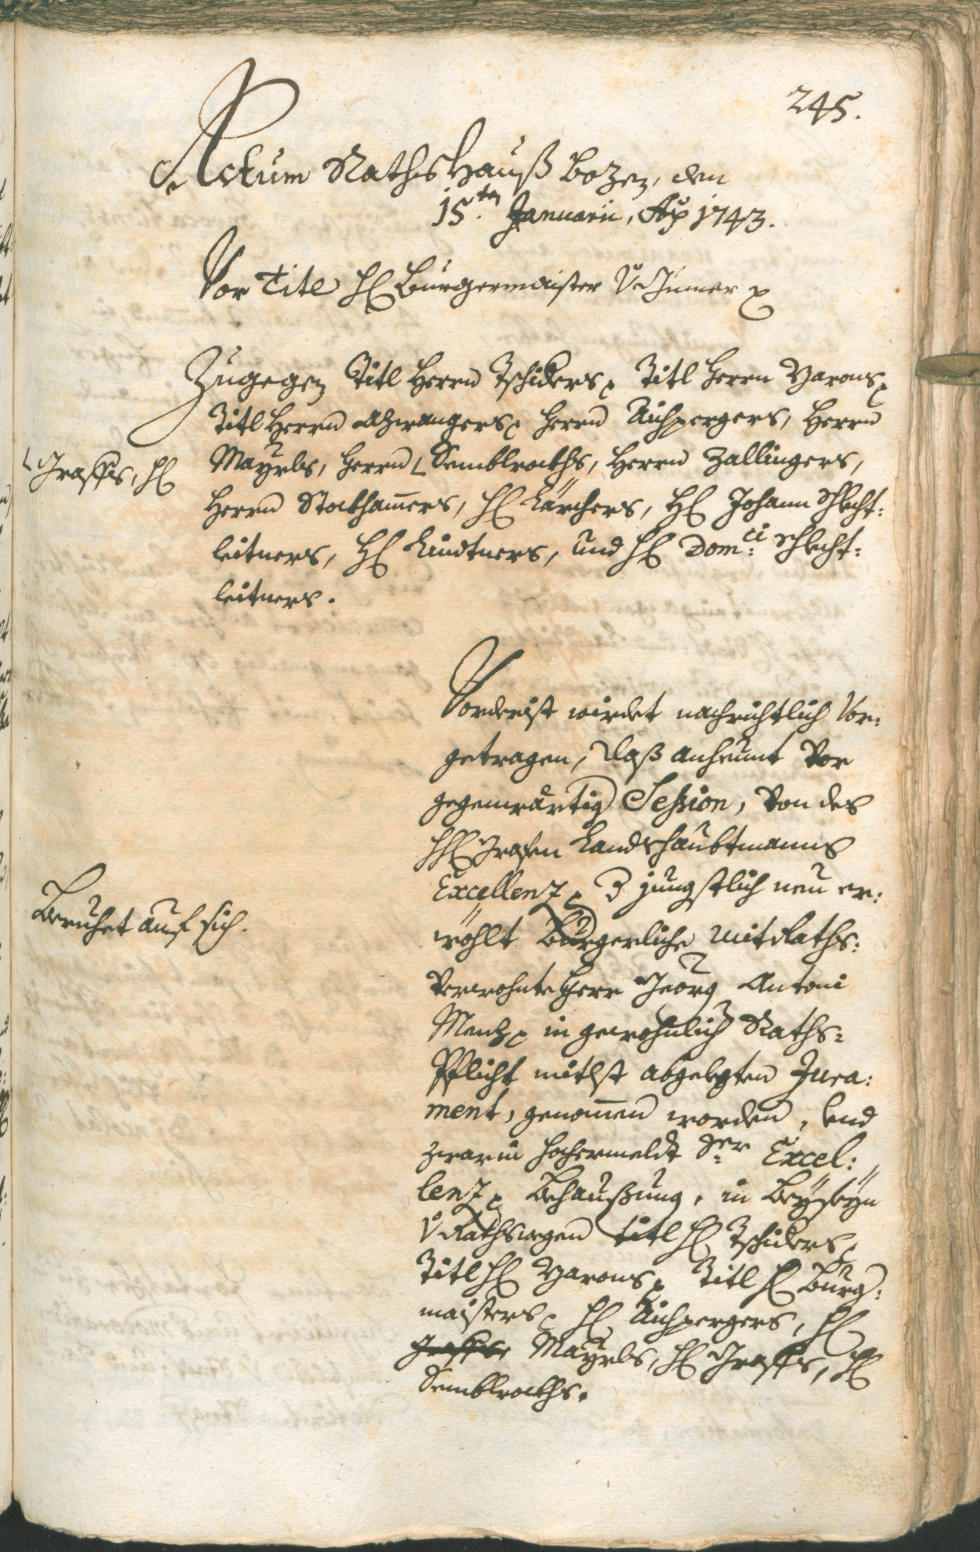 245.
Actum Raths Hauß Bozen, den
15.ten Januarii, Ao 1743.
Vor Titl H. Burgermaister V. Jnner
Zugegen Titl Herrn Tschiders, Titl Herrn Varons,
Titl Herrn Atzwangers, Herrn Aichpergers, Herrn
Mayrls, Herrn Semblrocks, Herrn Zallingers,
Graffs, H.
Herrn Stockhamers, H. Karchers, H. Johann Schlecht:
leitners, H. Kindtners, und H. Dom:ci Schlecht:
leitners.
Vorderist wirdet nachrichtlich Vor:
getragen, daß anheunt Vor
gegenwärtig Session, Von des
HH. Grafen Landshaubtmanns
Excellenz jungstlich neu er:
wöhlt Bürgerliche MitRaths:
Verwohnte Herr Georg Antoni
Menz in gewohnlich Raths:
Pflicht mitlst abgelegten Jura:
ment, genomen worden, und
zwar in hochermeldt Sr. Excel:
lenz Behaußung, in Beÿseÿn
Titl H. Tschiders,
Titl H. Varons, Titl H. Burg:
maisters, H. Aichpergers, H.
Graffs Mayrls, H. Graffs, H.
Semblrocks.
Beruhet auf sich.